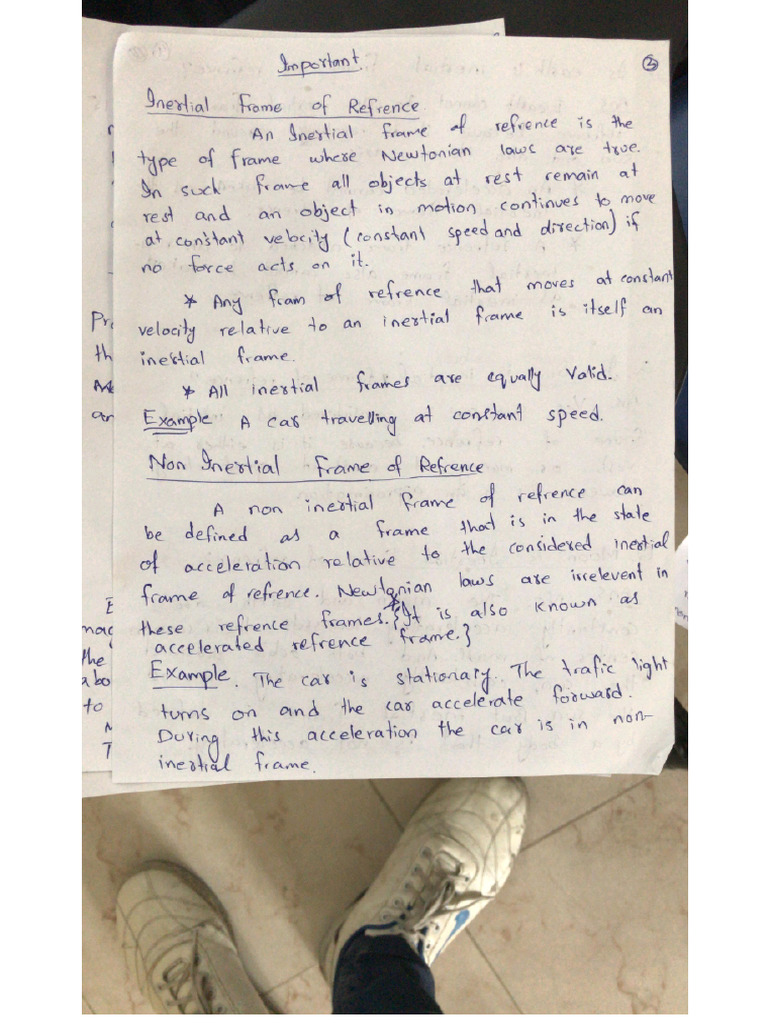 Important
3
Inertial frome of Refrence
An Inertial frame of refrence is the
type of frame where Newtonian laws are true.
In such frame all objects at rest remain at
rest and an object in motion continues to move
at constant velocity (constant speed and direction) if
no force acts on it.
* Any fram of refrence that moves at constant
velocity relative to an inertial frame is itself an
inertial frame.
* All inertial frames are equally valid.
Example A car travelling at constant speed.
Non Inertial frame of Refrence
A non inertial frame of refrence can
be defined as a frame that is in the state
of acceleration relative to the considered inertial
frame of refrence. Newtonian laws are irrelevent in
these refrence frames.*{It is also known as
accelerated refrence frame.}
Example. The car is stationary. The trafic light
turns on and the car accelerate forward.
During this acceleration the car is in non-
inertial frame.
Pr
th
an
the
abo
to